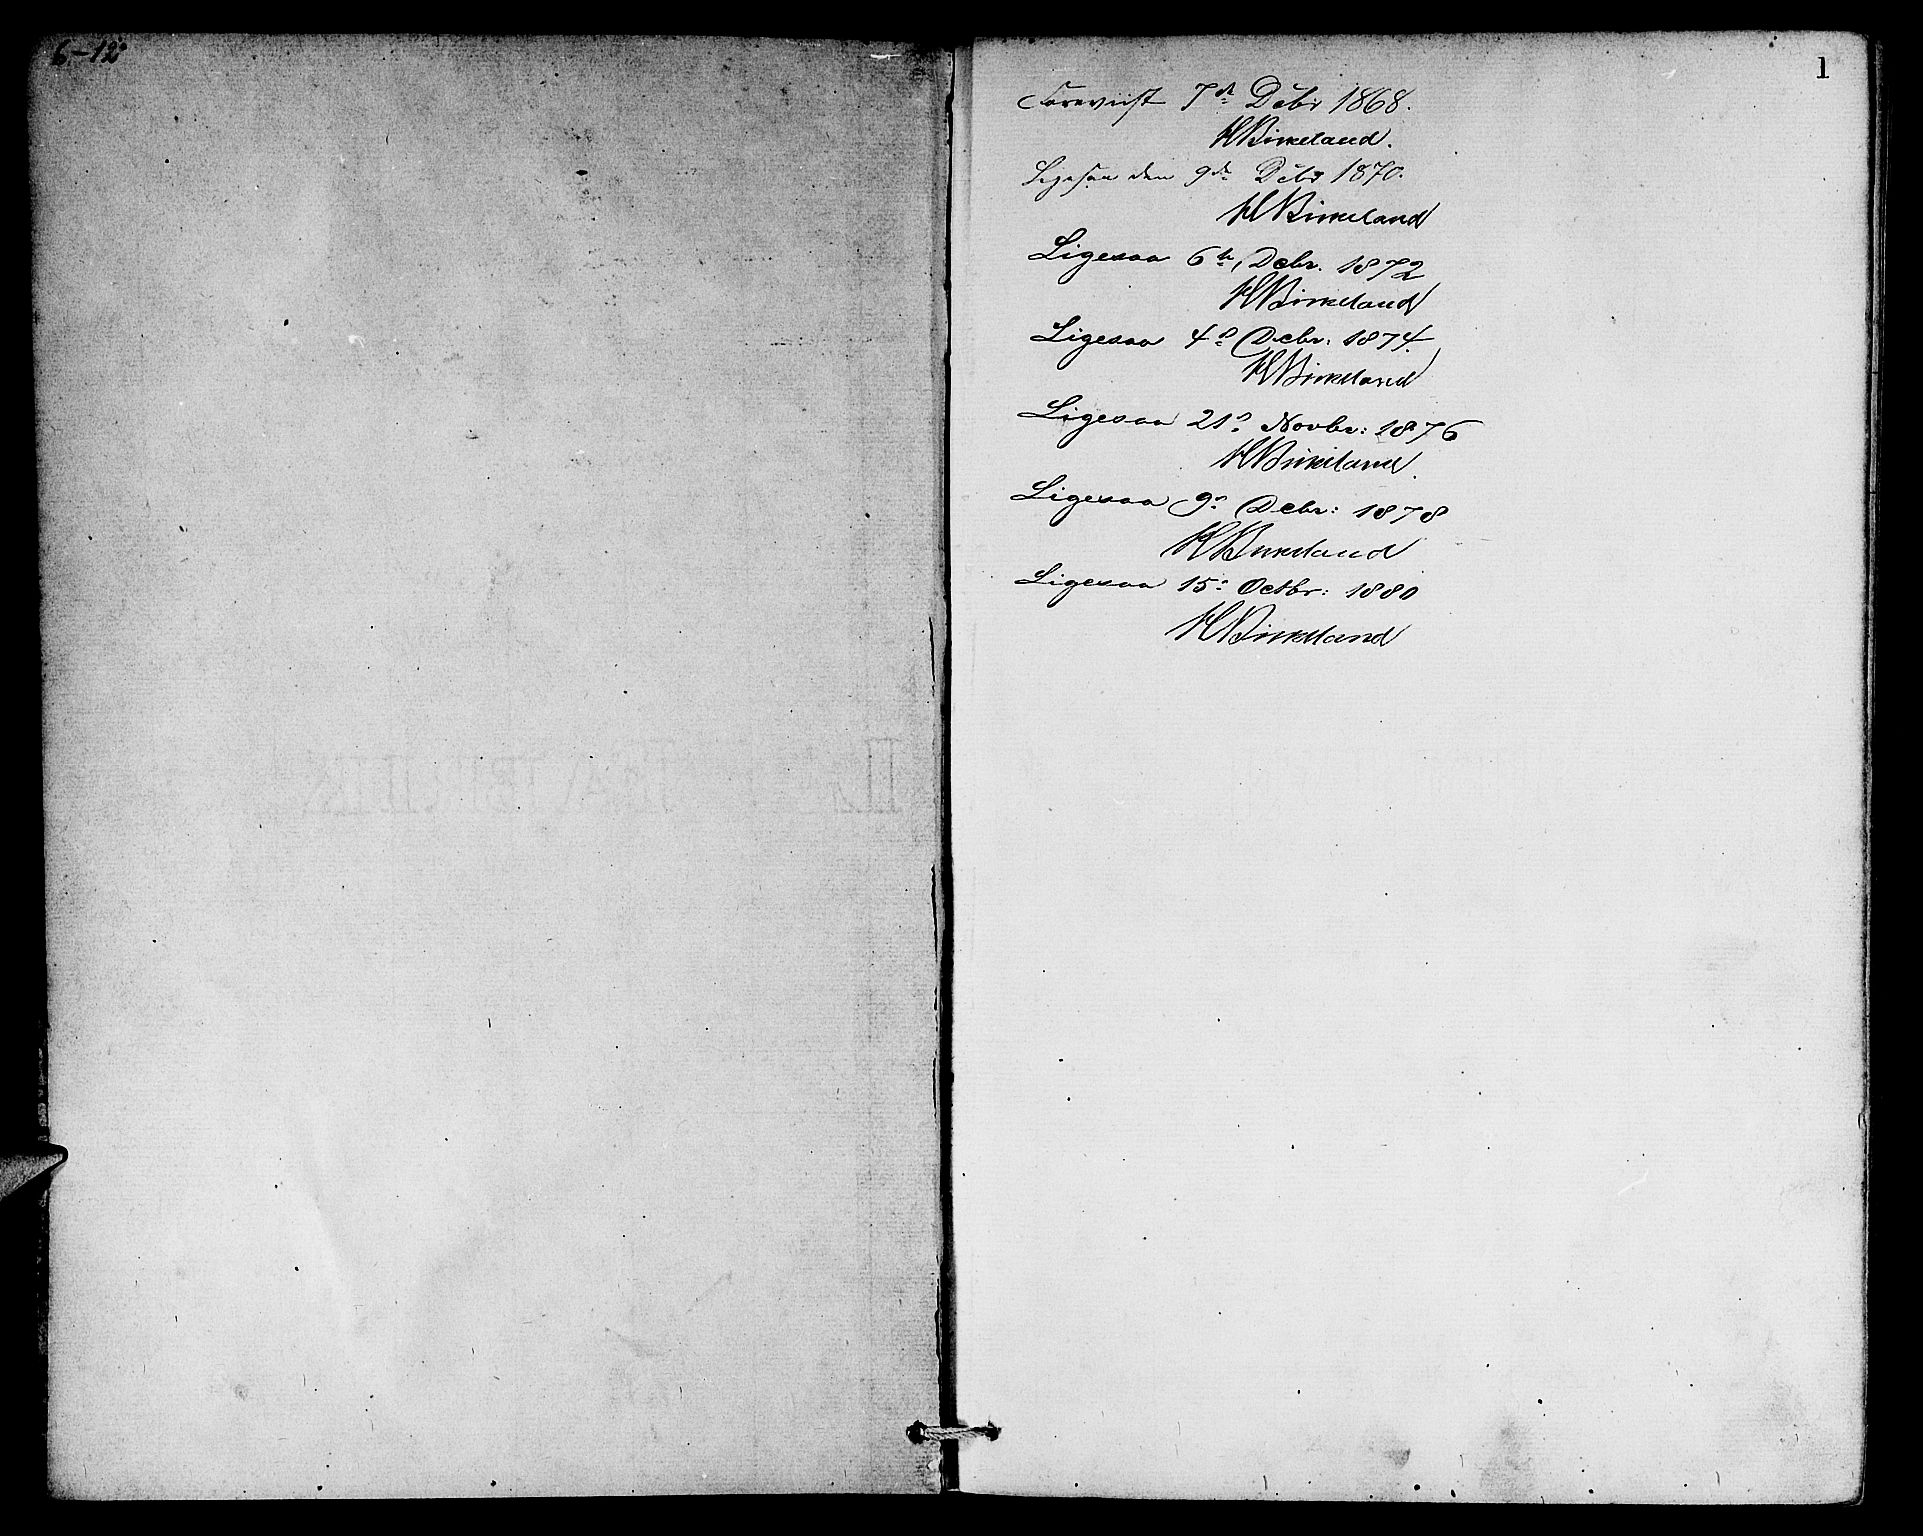 6-12
1
Foreviist 7de Dcbr 1868.
HBirkeland.
Ligesaa den 9de Dcbr 1870.
HBirkeland
Ligesaa 6te Dcbr. 1872
HBirkeland
Ligesaa 4de Dcbr: 1874.
HBirkeland
Ligesaa 21de Novbr: 1876
HBirkeland.
Ligesaa 9de Dcbr: 1878
HBirkeland
Ligesaa 15de Octbr: 1880
HBirkeland